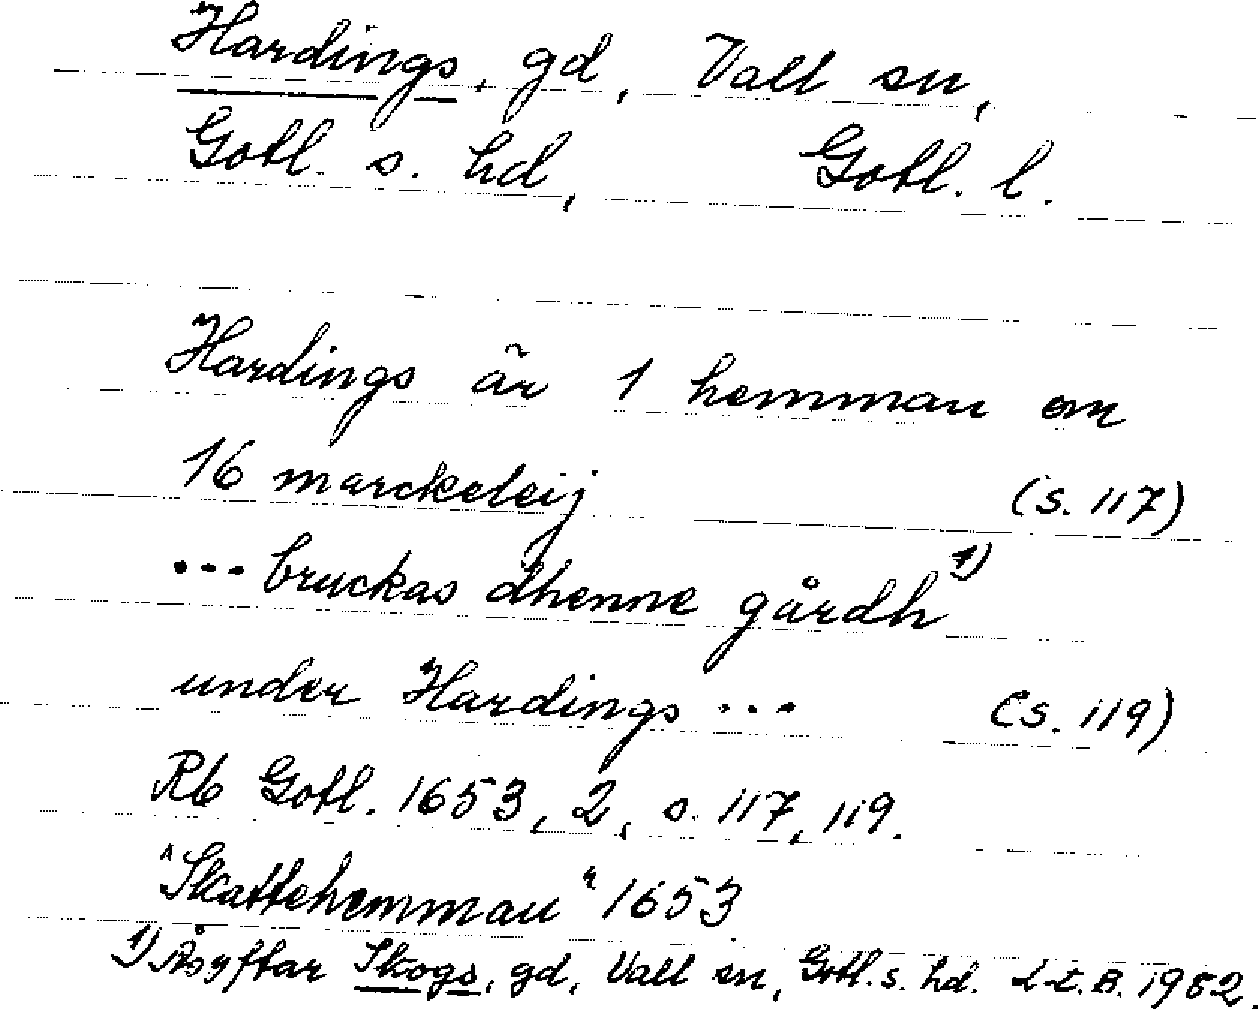 Hardings, gd, Vall sn,
Gotl. s. hd, Gotl. l.
Hardings är 1 hemman om
16 marckeleij (s. 117)
... bruckas dhenne gårdh 1)
under Hardings ... (s. 119)
Rb Gotl. 1653, 2, s. 117, 119.
"Skattehemman" 1653
1) Åsyftar Skogs, gd, Vall sn, Gotl. s. hd. 1952.